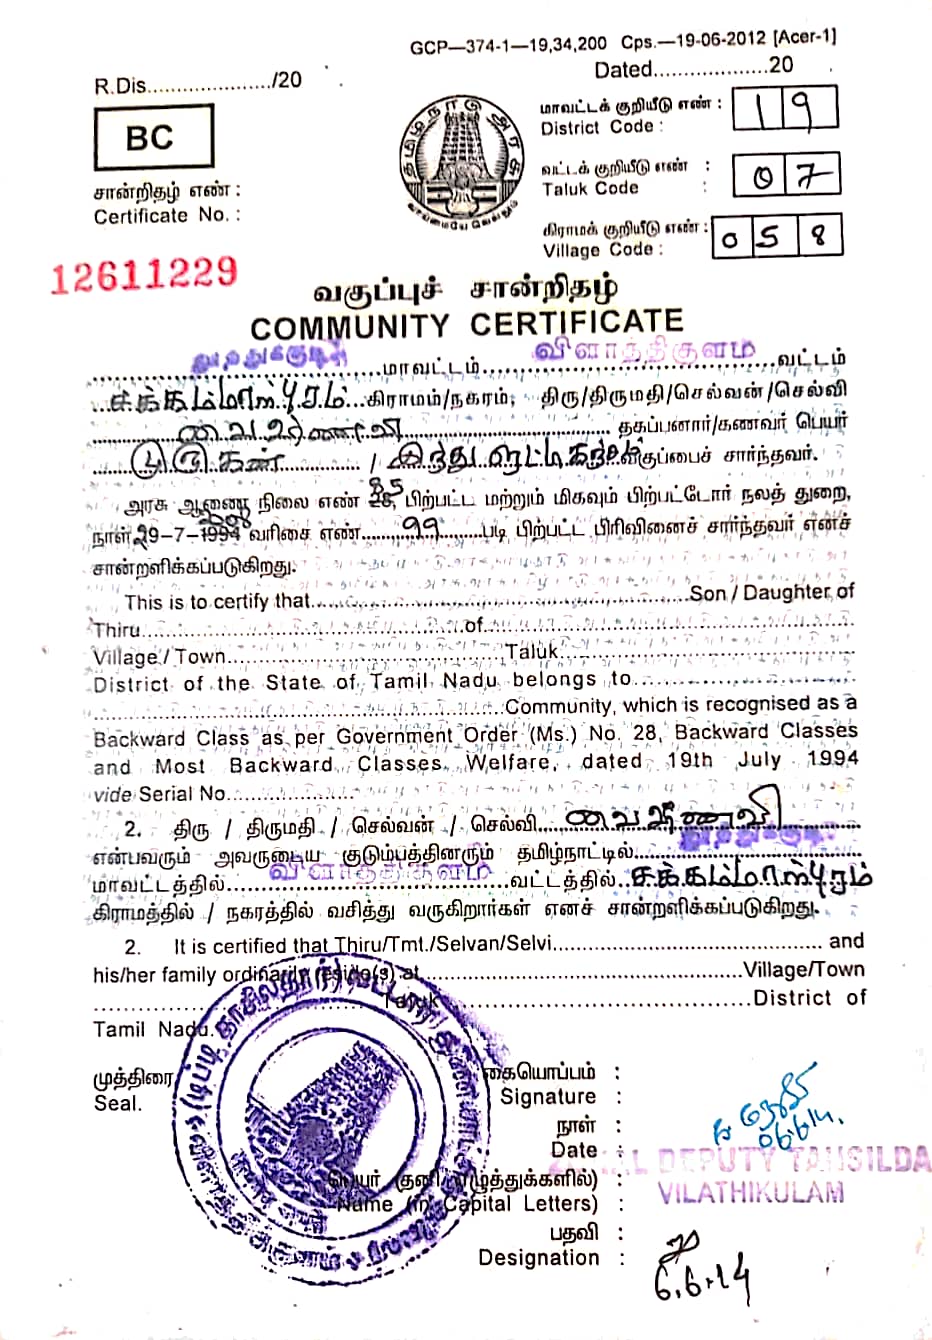 GCP—374-1—19,34,200 Cps.—19-06-2012 [Acer-1]
R.Dis....................../20
Dated....................20
BC
தமிழ்நாடு அரசு
வாய்மையே வெல்லும்
மாவட்டக் குறியீடு எண் : 19
District Code :
வட்டக் குறியீடு எண் : 07
Taluk Code :
கிராமக் குறியீடு எண் : 058
Village Code :
சான்றிதழ் எண் :
Certificate No. :
12611229
வகுப்புச் சான்றிதழ்
COMMUNITY CERTIFICATE
தூத்துக்குடி மாவட்டம் விளாத்திகுளம் வட்டம்
சக்கம்மாள்புரம் கிராமம்/நகரம்; திரு/திருமதி/செல்வன்/செல்வி
வைஷ்ணவி தகப்பனார்/கணவர் பெயர்
முருகன் / இந்து வகுப்பைச் சார்ந்தவர்.
அரசு ஆணை நிலை எண் 85 பிற்பட்ட மற்றும் மிகவும் பிற்பட்டோர் நலத் துறை,
நாள் 29-7- வரிசை எண் 99 படி பிற்பட்ட பிரிவினைச் சார்ந்தவர் எனச்
சான்றளிக்கப்படுகிறது.
This is to certify that....................Son / Daughter of
Thiru....................of....................
Village / Town....................Taluk....................
District of the State of Tamil Nadu belongs to....................
....................Community, which is recognised as a
Backward Class as per Government Order (Ms.) No. 28, Backward Classes
and Most Backward Classes Welfare, dated 19th July 1994
vide Serial No....................
2. திரு / திருமதி / செல்வன் / செல்வி வைஷ்ணவி
என்பவரும் அவருடைய குடும்பத்தினரும் தமிழ்நாட்டில் தூத்துக்குடி
மாவட்டத்தில் விளாத்திகுளம் வட்டத்தில் சக்கம்மாள்புரம்
கிராமத்தில் / நகரத்தில் வசித்து வருகிறார்கள் எனச் சான்றளிக்கப்படுகிறது.
2. It is certified that Thiru/Tmt./Selvan/Selvi.................... and
his/her family ordinarily reside(s) at....................Village/Town
....................Taluk....................District of
Tamil Nadu.
முத்திரை
Seal.
கையொப்பம் :
Signature :
நாள் :
Date :
06.6.14.
பெயர் (தனி எழுத்துக்களில்) :
Name (in Capital Letters) :
DEPUTY TAHSILDA
VILATHIKULAM
பதவி :
Designation :
6.6.14